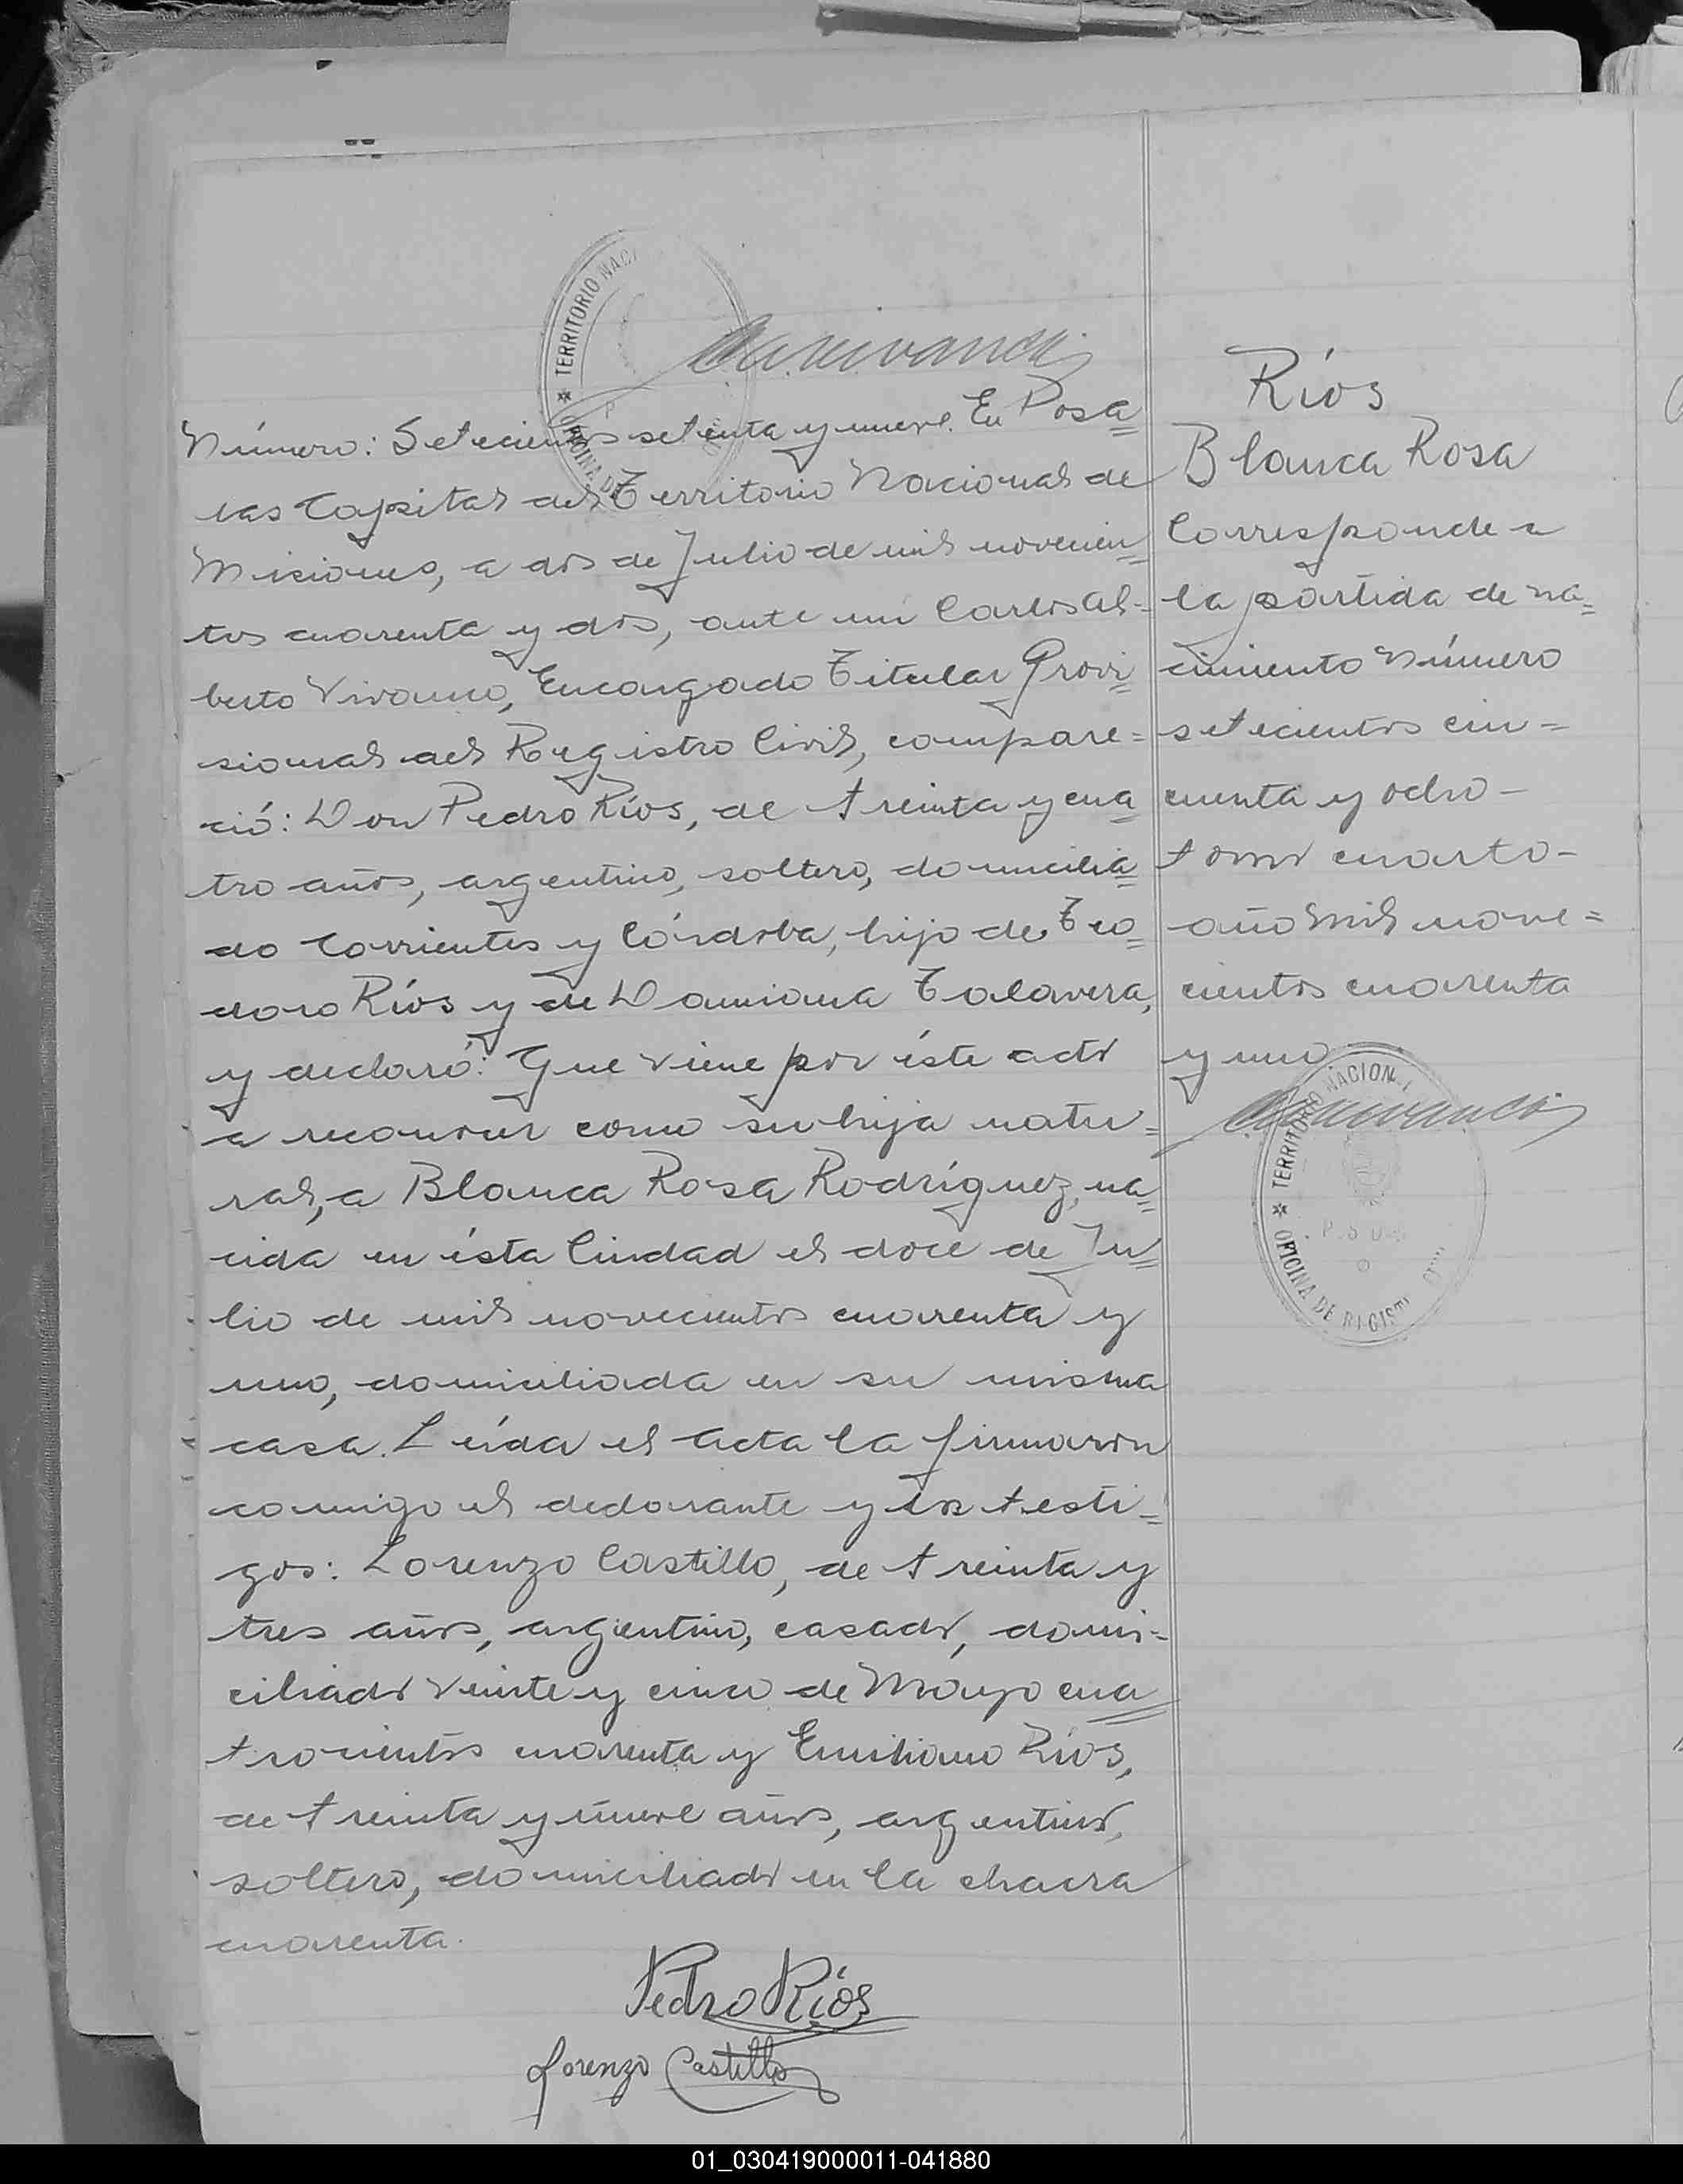 TERRITORIO NACI
OFICINA DE
Número: Setecientos setenta y nueve. En Posa=
das Capital del Territorio Nacional de
Misiones, a dos de Julio de mil novecien=
tos cuarenta y dos, ante mí Carlos Al-
berto Vivanco, Encargado Titular Provi=
sional del Registro Civil, compare=
ció: Don Pedro Ríos, de treinta y cua=
tro años, argentino, soltero, domicilia=
do Corrientes y Córdoba, hijo de Teo=
doro Ríos y de Damiana Talavera,
y declaró: Que viene por éste acto
a reconocer como su hija natu=
ral, a Blanca Rosa Rodríguez, na=
cida en ésta Ciudad el doce de Ju=
lio de mil novecientos cuarenta y
uno, domiciliada en su misma
casa. Leída el Acta la firmaron
comigo el declarante y los testi=
gos: Lorenzo Castillo, de treinta y
tres años, argentino, casado, domi-
ciliado veinte y cinco de Mayo cua=
trocientos cuarenta y Emiliano Ríos,
de treinta y nueve años, argentino,
soltero, domiciliado en la chacra
cuarenta.
Pedro Ríos
Lorenzo Castillo
Ríos
Blanca Rosa
Corresponde a
la partida de na=
cimiento Número
setecientos cin=
cuenta y ocho-
tomo cuarto-
año mil nove=
cientos cuarenta
y uno
TERRITORIO NACIONAL
OFICINA DE REGIST
01_030419000011-041880